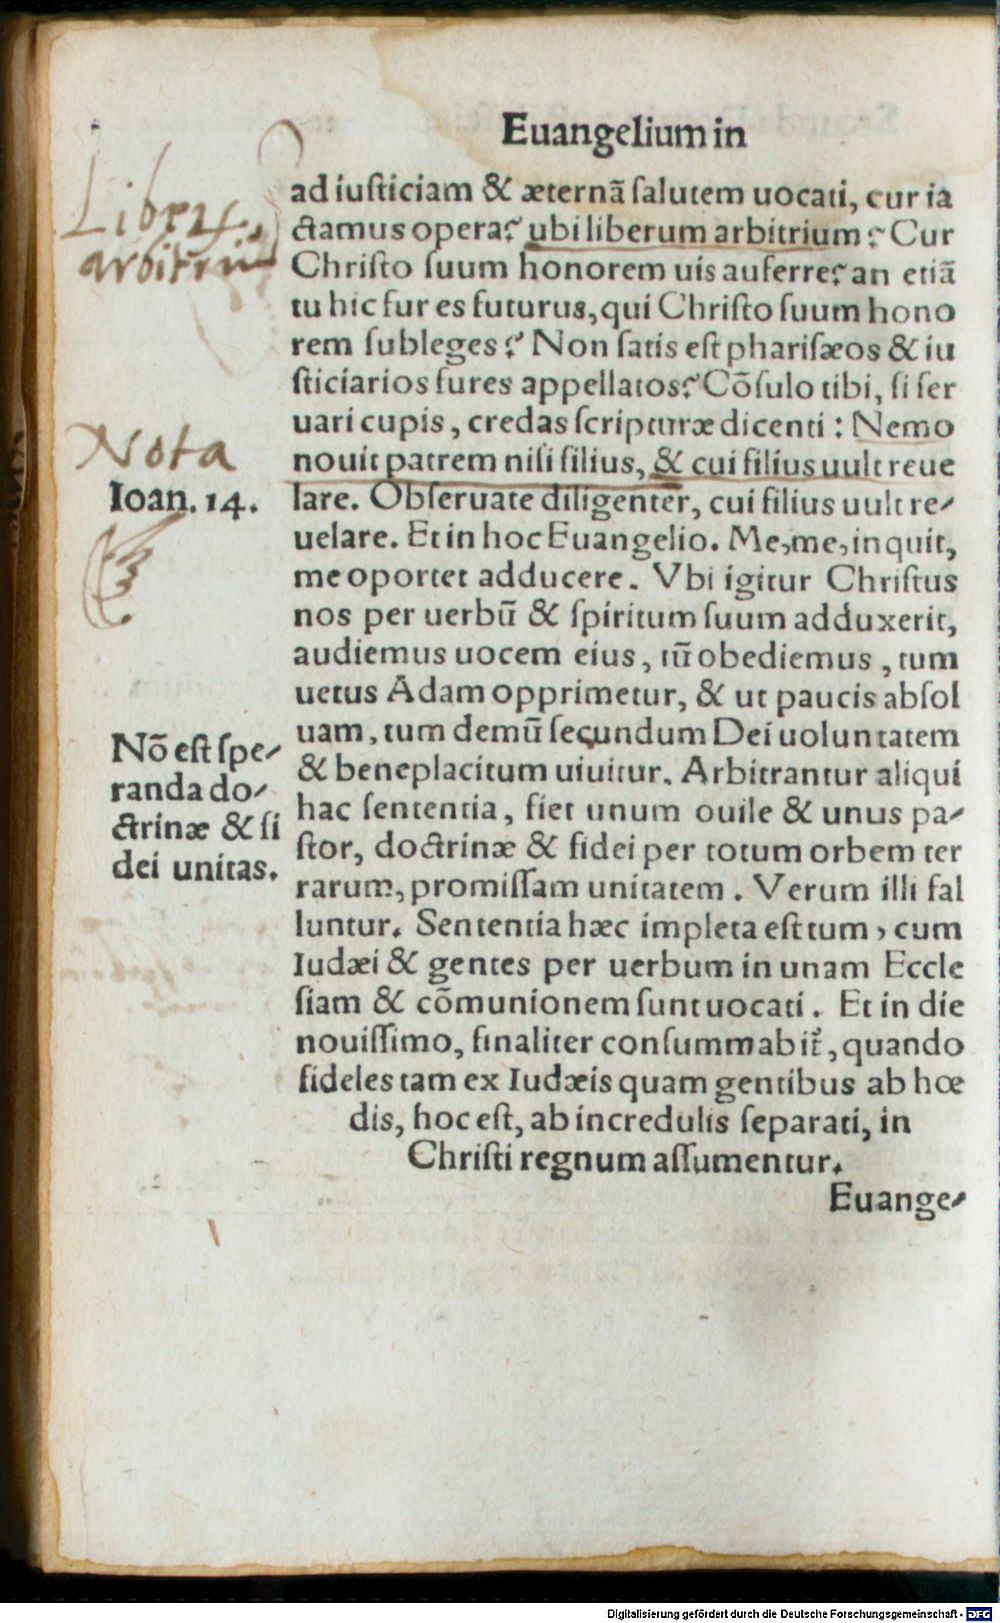 Euangelium in
ad iusticiam & æternã salutem uocati, cur ia
ctamus opera? ubi liberum arbitrium? Cur
Christo suum honorem uis auferre? an etiã
tu hic fur es futurus, qui Christo suum hono
rem subleges? Non satis est pharisæos & iu
sticiarios fures appellatos? Cõsulo tibi, si ser
uari cupis, credas scripturæ dicenti: Nemo
nouit patrem nisi filius, & cui filius uult reue
lare. Obseruate diligenter, cui filius uult re-
uelare. Et in hoc Euangelio. Me, me, inquit,
me oportet adducere. Vbi igitur Christus
nos per uerbũ & spiritum suum adduxerit,
audiemus uocem eius, tũ obediemus, tum
uetus Adam opprimetur, & ut paucis absol
uam, tum demũ secundum Dei uoluntatem
& beneplacitum uiuitur. Arbitrantur aliqui
hac sententia, fiet unum ouile & unus pa-
stor, doctrinæ & fidei per totum orbem ter
rarum, promissam unitatem. Verum illi fal
luntur. Sententia hæc impleta est tum, cum
Iudæi & gentes per uerbum in unam Eccle
siam & cõmunionem sunt uocati. Et in die
nouissimo, finaliter consummabit̃, quando
fideles tam ex Iudæis quam gentibus ab hœ
dis, hoc est, ab incredulis separati, in
Christi regnum assumentur.
Euange-
Nota
Ioan. 14.
Nõ est spe-
randa do-
ctrinæ & fi
dei unitas.